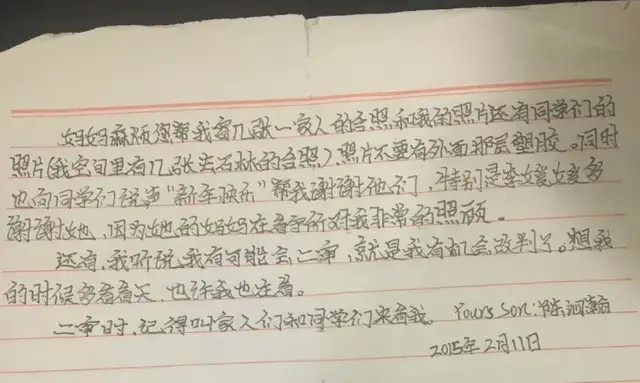 妈妈麻烦您帮我寄几张一家人的合照和我的照片还有同学们的
照片(我空间里有几张去石林的合照)照片不要有外面那层塑胶。同时
也向同学们说声“新年快乐”帮我谢谢他们，特别是李媛媛多
谢谢她，因为她的妈妈在看守所对我非常的照顾。
还有，我听说我有可能会二审，就是我有机会改判了。想我
的时候多看看天，也许我也在看。
二审时，记得叫家人们和同学们来看我。Yours son: 陈泗翰
2015年2月11日